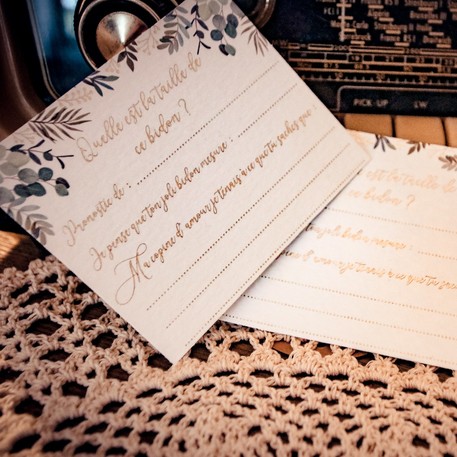 Quelle est la taille de
ce bidon ?
Pronostic de :
Je pense que ton joli bidon mesure :
Ma copine d'amour je tenais à ce que tu saches que
est la taille de
ce bidon ?
joli bidon mesure :
d'amour je tenais à ce que tu saches
PICK-UP LW